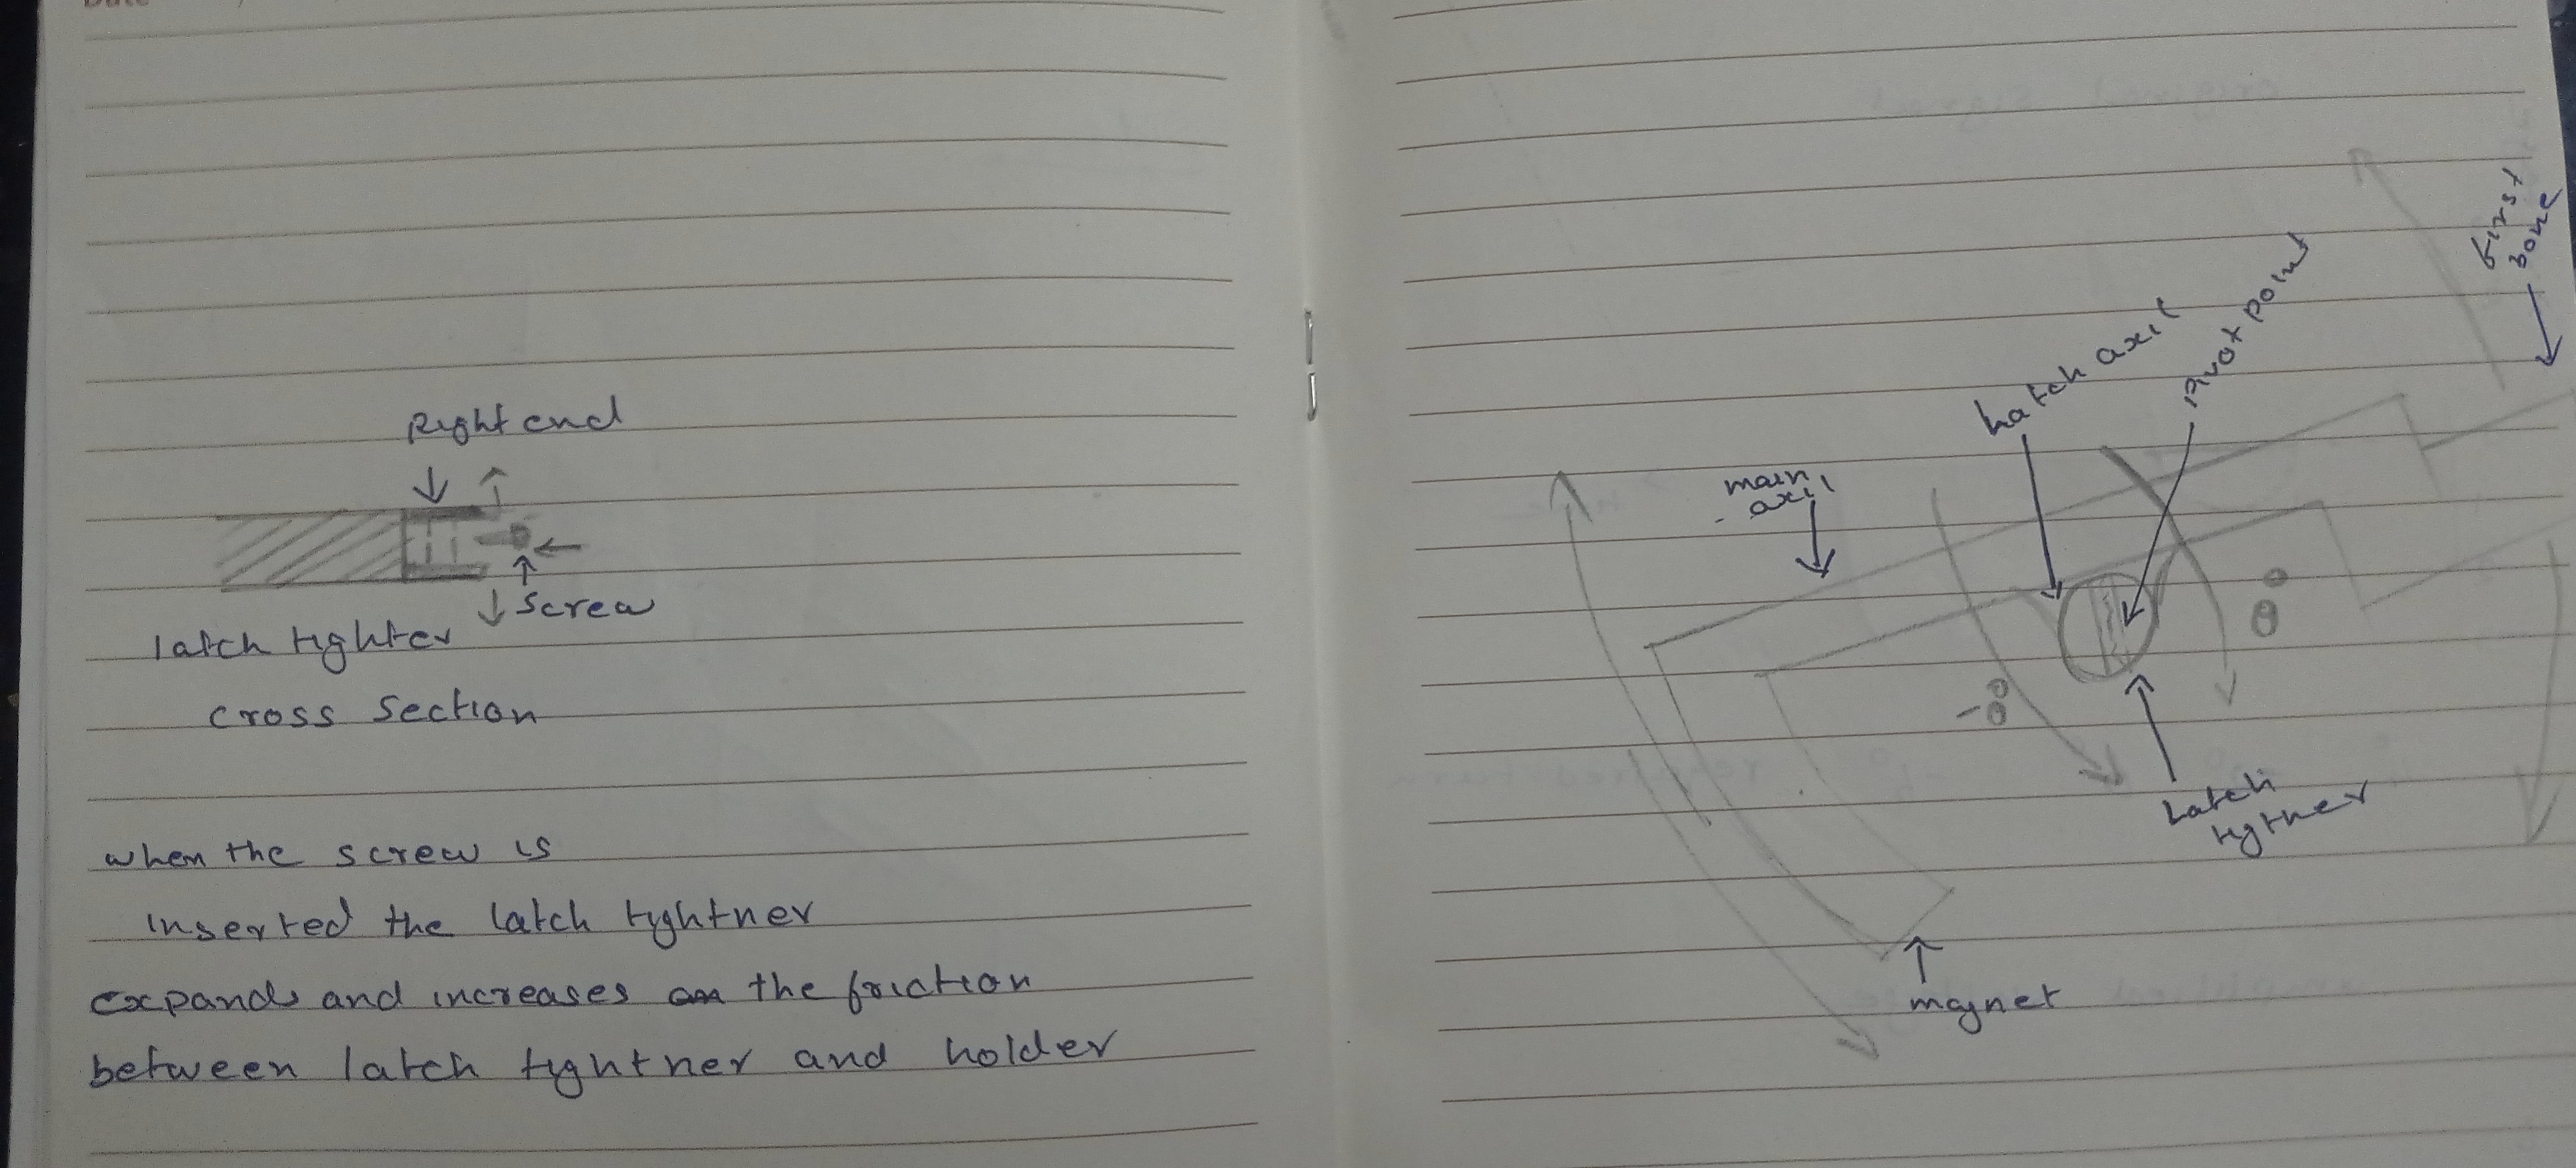 Right end
screw
latch tighter
cross section
when the screw is
inserted the latch tightner
expands and increases the friction
between latch tightner and holder
first
bone
pivot point
hatch axil
main
axil
θ°
-θ°
Latch
tigtner
magnet